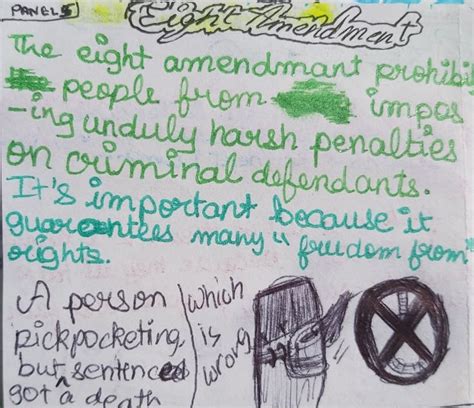 PANEL 5
Eight Amendment
The eight amendmant prohibit
people from impos
-ing unduly harsh penalties
on criminal defendants.
It's important because it
guarantees many "freedom from"
rights.
A person
pickpocketing,
but sentenced
got a death
which
is
wrong